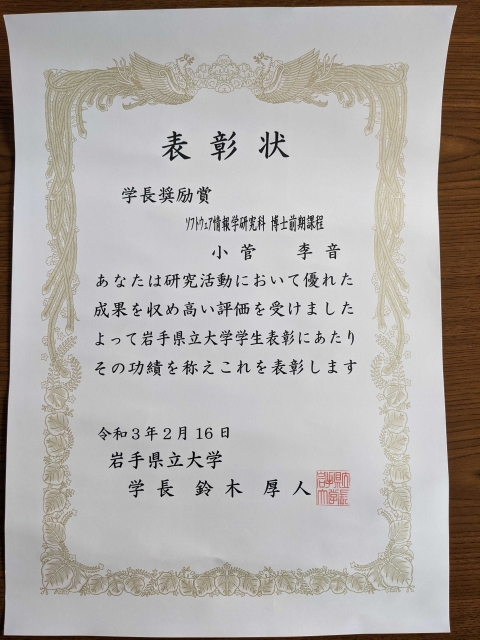 表彰状
学長奨励賞
ソフトウェア情報学研究科 博士前期課程
小菅 李音
あなたは研究活動において優れた
成果を収め高い評価を受けました
よって岩手県立大学学生表彰にあたり
その功績を称えこれを表彰します
令和3年2月16日
岩手県立大学
学長 鈴木厚人